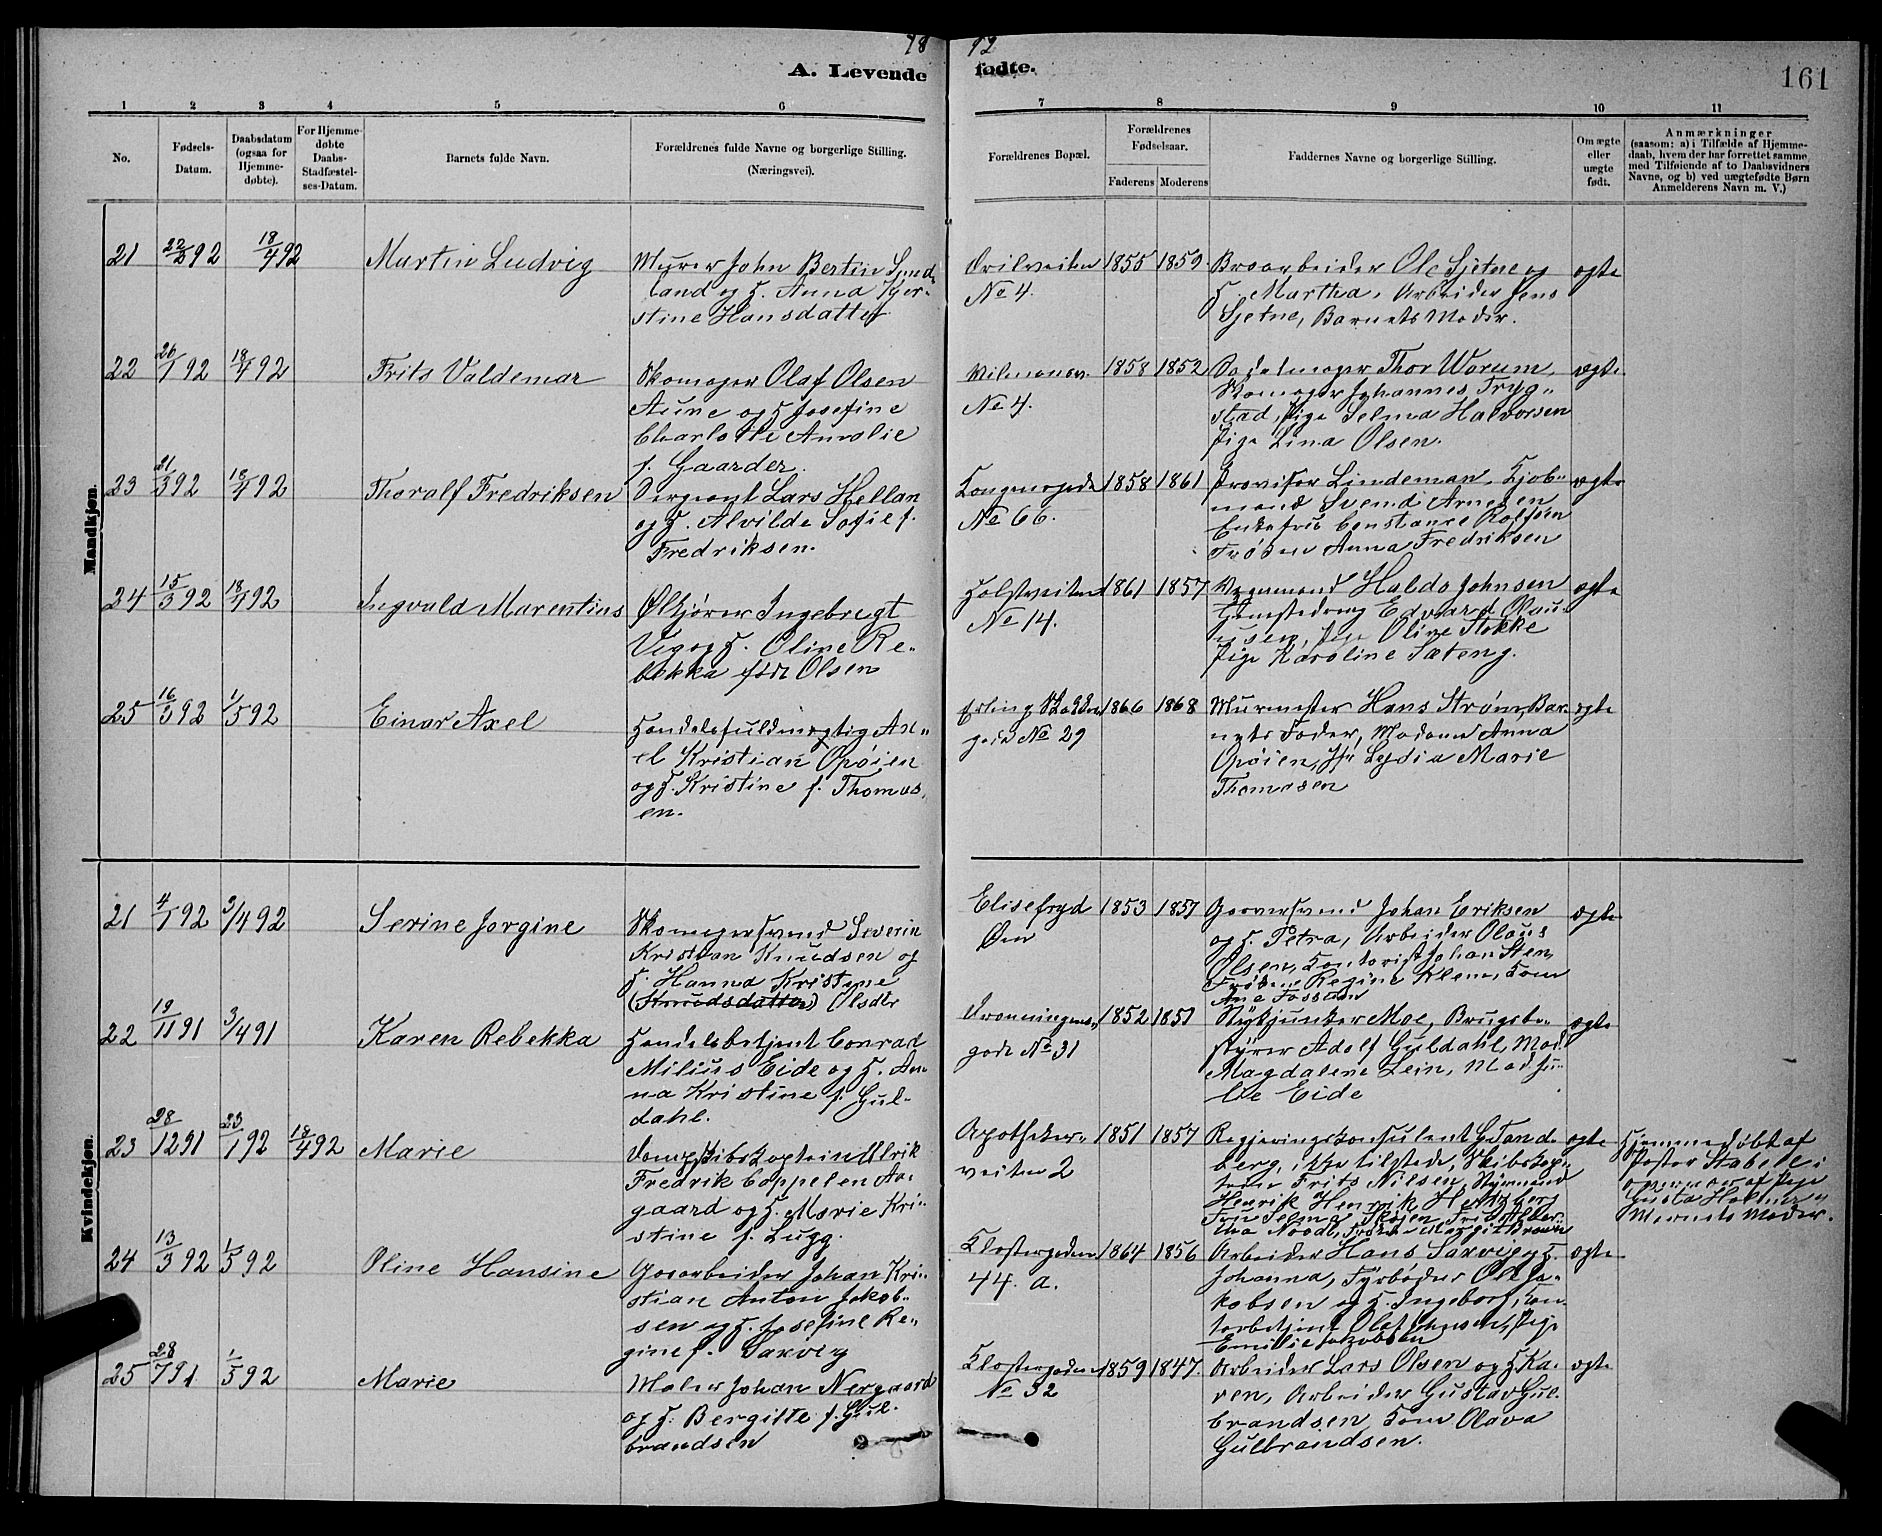 18 92
A. Levende fødte.
161
1 2 3 4 5 6 7 8 9 10 11
No.
Fødsels-
Datum.
Daabsdatum
(ogsaa for
Hjemme-
døbte).
For Hjemme-
døbte
Daabs-
Stadfæstel-
ses-Datum.
Barnets fulde Navn.
Forældrenes fulde Navne og borgerlige Stilling.
(Næringsvei).
Forældrenes Bopæl.
Forældrenes
Fødselsaar.
Faderens Moderens
Faddernes Navne og borgerlige Stilling.
Om ægte
eller
uægte
født.
Anmærkninger
(saasom: a) i Tilfælde af Hjemme-
daab, hvem der har forrettet samme,
med Tilføiende af to Daabsvidners
Navne, og b) ved uægtefødte Børn
Anmelderens Navn m. V.)
Mandkjøn.
21 22/2 92 18/4 92 Martin Ludvig
Murer John Bertin
land og H. Anna Kjer-
stine Hansdatter
No 4.
1855 1859
Broarbeider Ole Sjetne og
H. Martha, Arbeider Jens
Sjetne, Barnets Moder.
ægte
22 26/1 92 18/4 92 Frits Valdemar
Skomager Olaf Olsen
Aune og H. Josefine
Charlotte Amalie
f. Gaarder.
No 4.
1858 1852
Sadelmager Thor Worum,
Skomager Johannes Tryg-
stad, Pige Selma Halvorsen
Pige Lina Olsen.
ægte
23 21/3 92 18/4 92 Thoralf Fredriksen
Sergeant Lars Hellan
og H. Alvilde Sofie f.
Fredriksen.
Kongensgade
No 66.
1858 1861
Provisor Lindeman, Kjøb-
mand Svend Arnesen
Enkefru Constance Rolfsen
Frøken Anna Fredriksen
ægte
24 15/3 92 18/4 92 Ingvald Marentius
Ølkjører Ingebrigt
Vig og H. Oline Re-
bekka født Olsen
Holstveiten
No 14.
1861 1857
Vognmand Haldo Johnsen
Edvard Olau-
sen, Pige Oline Stokke
Pige Karoline Sæteng.
ægte
25 16/3 92 1/5 92 Einar Axel
Handelsfuldmægtig Ax-
el Kristian Opøien
og H. Kristine f. Thomas-
en.
Erling Skakkes
gade No 29
1866 1868
Murmester Hans Strøm, Bar-
nets Fader, Madam Anna
Opøien, Lydia Marie
Thomasen
ægte
Kvindekjøn.
21 4/1 92 3/4 92 Serine Jorgine
Skomagersvend Severin
Kristian Knudsen og
H. Hanna Kristine
(Knudsdatter) Olsdtr
Elisefryd
Øen
1853 1857
Garversvend Johan Eriksen
og H. Petra, Arbeider Olaus
Olsen, Kontorist Johan Sten,
Frøken Regine Klem, Kone
Ane Fossum
ægte
22 19/11 91 3/4 91 Karen Rebekka
Handelsbetjent Conrad
Milius Eide og H. An-
na Kristine f. Gul-
dahl.
Dronningens-
gade No 31
1852
Stykjunker Moe, Brugsbe-
styrer Adolf Guldahl, Mad.
Magdalene Lein, Mad. Ju-
lie Eide
ægte
23 28/12 91 23/1 92 18/4 92 Marie
Dampskibskaptein Ulrik
Fredrik Coppelen Aa-
gaard og H. Marie Kri-
stine f. Lugg.
Apotheker-
veiten 2
1851 1857
Regjeringskonsulent G Tand-
berg, ikke tilstede, Skibskap-
tein Frits Nilsen, Styrmand
Henrik Henrik Hertzberg
ægte
Hjemmedøbt af
Pastor Stabell i
overvær af Pige
Gusta
Barnets Moder.
24 13/3 92 1/5 92 Oline Hansine
Gasarbeider Johan Kri-
stian Anton Jakob-
sen og H. Josefine Re-
gine f. Saxvig
Klostergaden
44. a.
1864 1856
Arbeider Hans Saxvig og H.
Johanna, Fyrbøder Ole Ja-
kobsen og H. Ingeborg, Kon-
torbetjent Olaf Johnsen, Pige
Emilie Jakobsen
ægte
25 28/7 91 1/5 92 Marie
Maler Johan Nergaard
og H. Bergitte f. Gul-
brandsen
Klostergaden
No 32
1859 1847.
Arbeider Lars Olsen og H. Ka-
ren, Arbeider Gustav Gul-
brandsen, Kone Olava
Gulbrandsen.
ægte